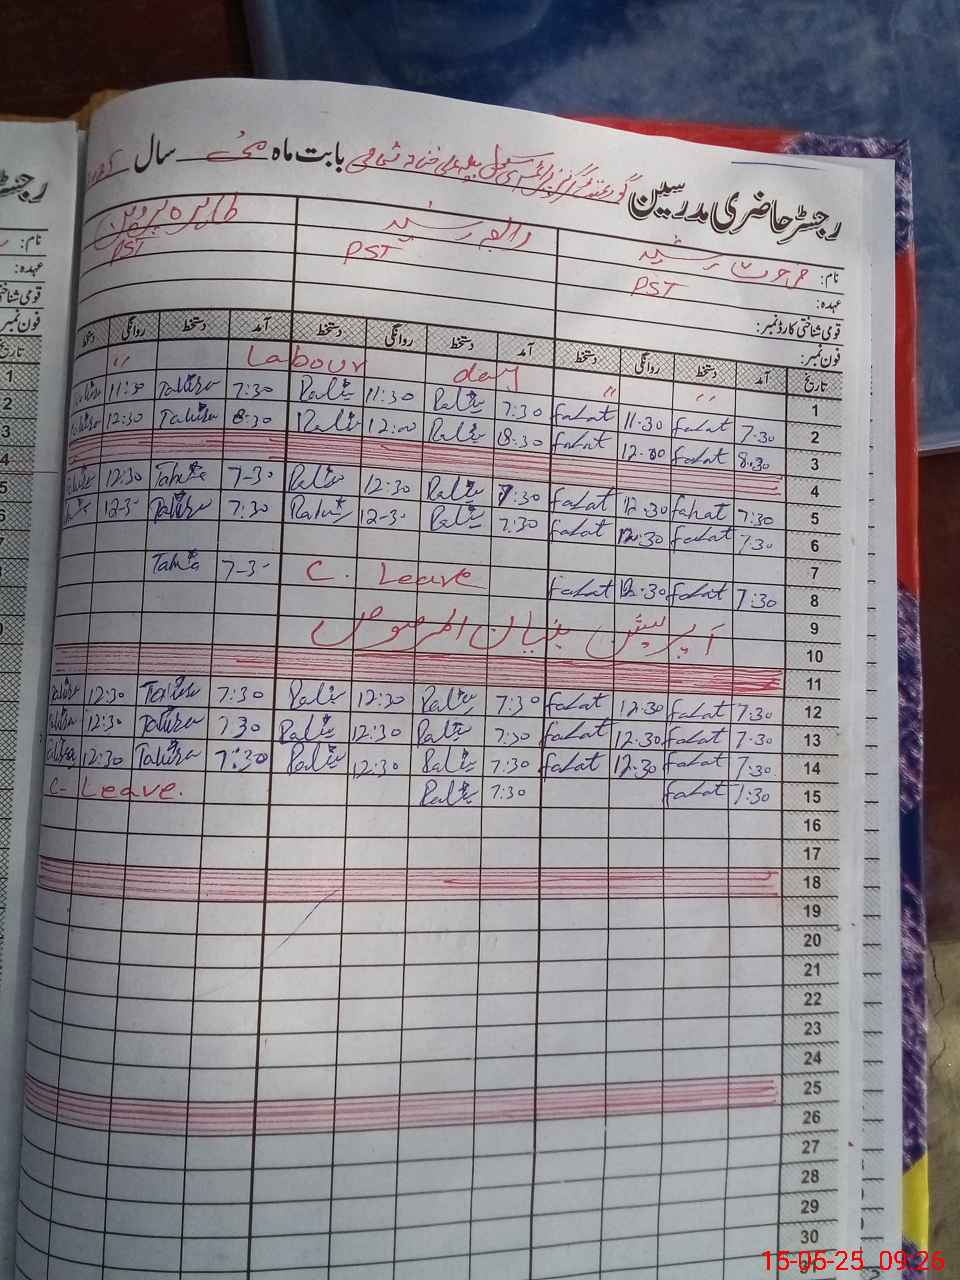 رجسٹر حاضری مدرسین گورنمنٹ گرلز پرائمری سکول بابت ماہ مئی سال
نام: فرحت رشید رابعہ رشید طاہرہ پروین
عہدہ: PST PST PST
قومی شناختی کارڈ نمبر:
فون نمبر:
تاریخ آمد دستخط روانگی دستخط آمد دستخط روانگی دستخط آمد دستخط روانگی دستخط
1 " " Labour day "
2 7.30 Fahat 11.30 Fahat 7:30 Rabia 11:30 Rabia 7:30 Tahira 11:30 Tahira
3 8.30 Fahat 12.00 Fahat 8.30 Rabia 12:00 Rabia 8:30 Tahira 12:30 Tahira
4
5 7:30 Fahat 12.30 Fahat 7:30 Rabia 12:30 Rabia 7-30 Tahira 12:30 Tahira
6 7.30 Fahat 12.30 Fahat 7:30 Rabia 12-30 Rabia 7:30 Tahira 12-30
7
8 7:30 Fahat 12.30 Fahat C. Leave 7-30 Tahira
9 آپریشن بنیان المرصوص
10
11
12 7:30 Fahat 12.30 Fahat 7:30 Rabia 12:30 Rabia 7:30 Tahira 12:30 Tahira
13 7.30 Fahat 12.30 Fahat 7:30 Rabia 12:30 Rabia 7 30 Tahira 12:30 Tahira
14 7:30 Fahat 12.30 Fahat 7:30 Rabia 12:30 Rabia 7:30 Tahira 12:30 Tahira
15 7:30 Fahat 7:30 Rabia C- Leave.
16
17
18
19
20
21
22
23
24
25
26
27
28
29
30
31
15-05-25 09:26